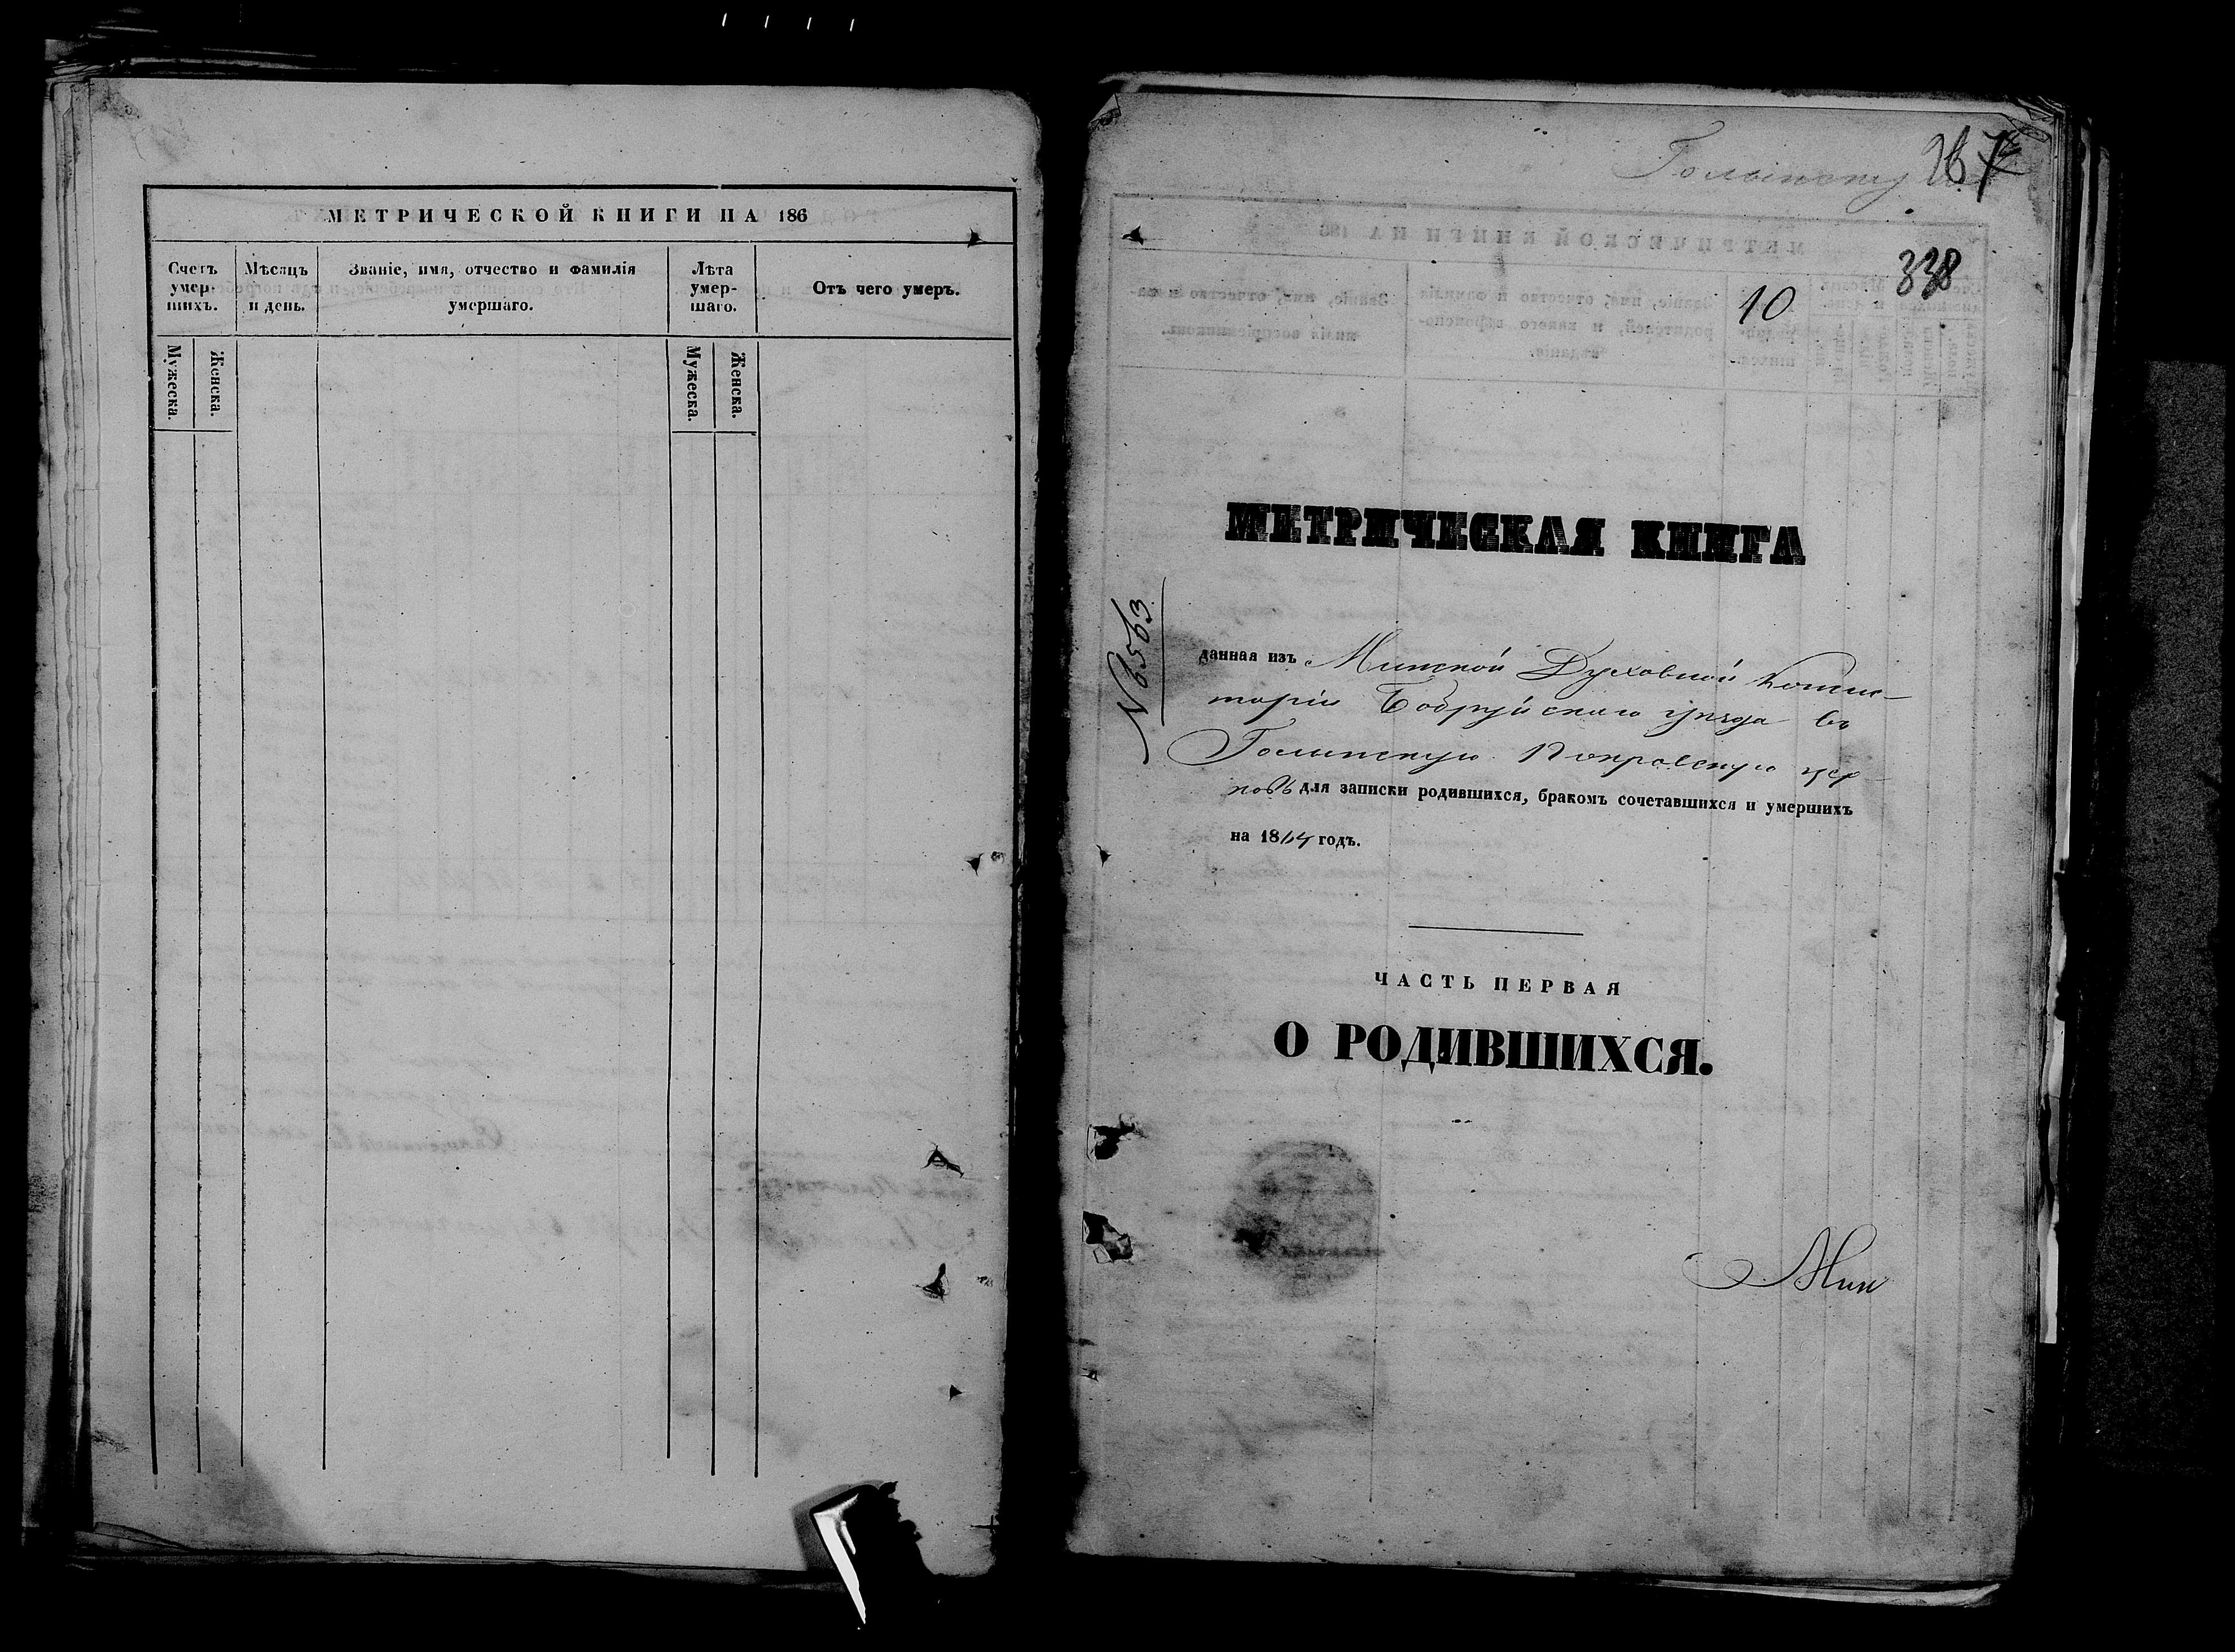 МЕТРИЧЕСКОЙ КНИГИ НА 186
Счетъ умер-шихъ.
Мѣсяцъ и день.
Званіе, имя, отчество и фамилія умершаго.
Лѣта умер-шаго.
Отъ чего умеръ.
Мужеска.
Женска.
Мужеска.
Женска.
267
338
10
МЕТРИЧЕСКАЯ КНИГА
№ 6563
данная изъ Минской Духовной Консис-
торіи Бобруйскаго уѣзда въ
Голынскую Покровскую цер-
ковь для записки родившихся, бракомъ сочетавшихся и умершихъ
на 1864 годъ.
ЧАСТЬ ПЕРВАЯ
О РОДИВШИХСЯ.
Мин